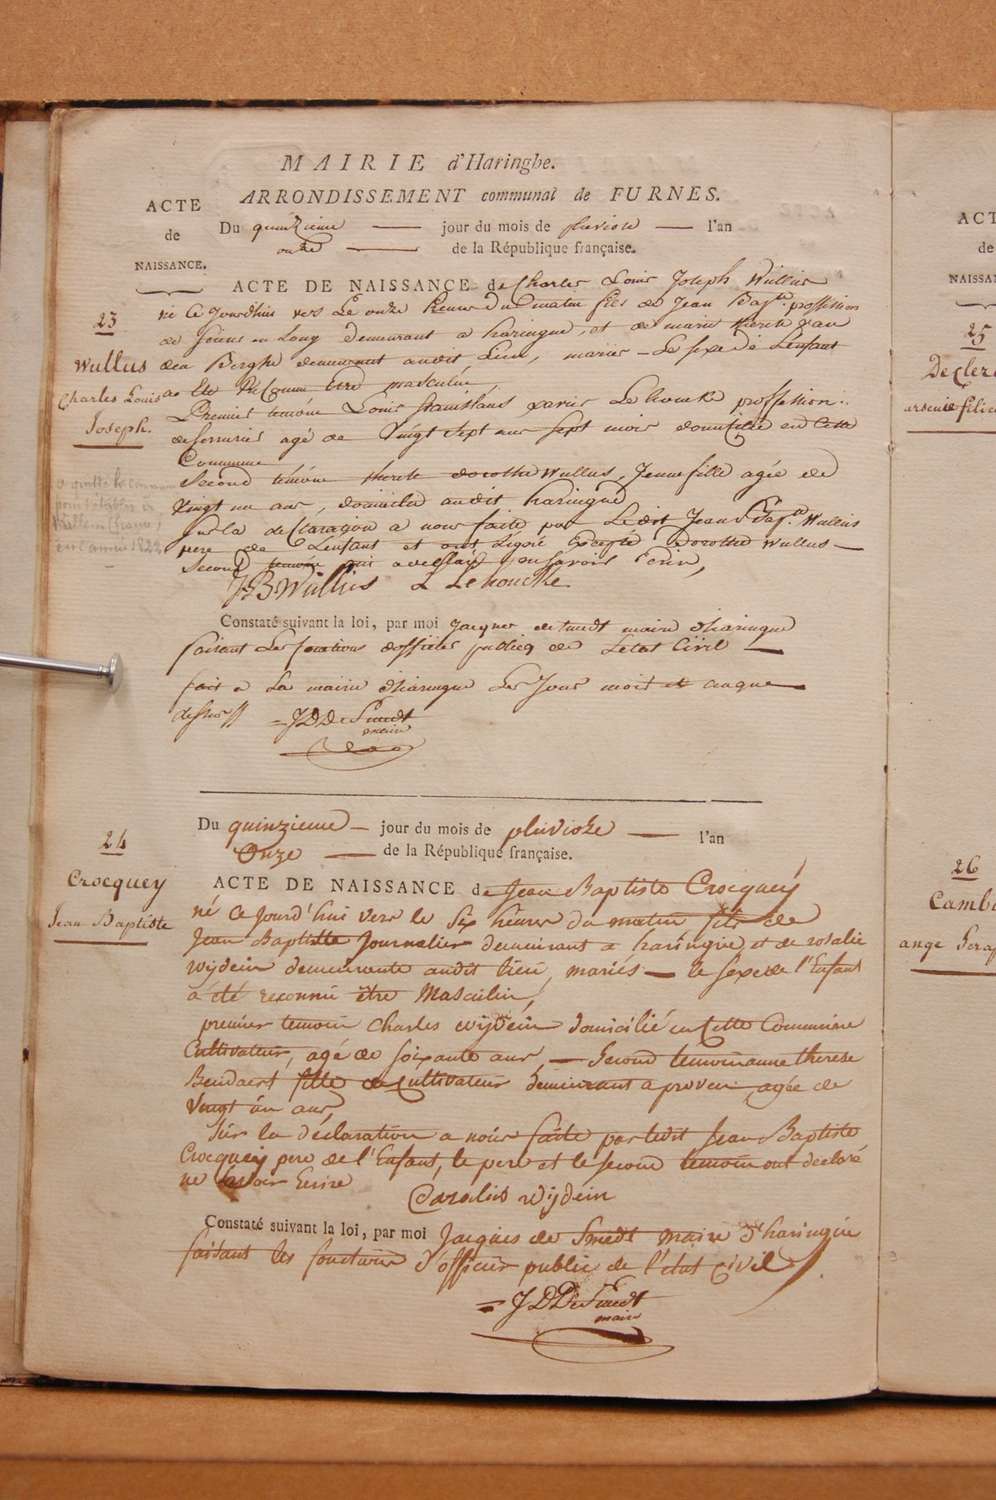 MAIRIE d'Haringhe.
ARRONDISSEMENT communal de FURNES.
ACTE
de
NAISSANCE.
Du quinzieme jour du mois de pluviose l'an
onze de la République française.
ACTE DE NAISSANCE de Charles Louis Joseph Wullus
né Ce Jourdhui vers Le onze heures Du matin fils de Jean Bapte. profession
de demeurant a haringue, et de marie therese van
den Berghe demeurant audit Lieu, mariés - Le sexe de Lenfant
a Eté Reconnu Etre masculin,
23
Wullus
Charles Louis
Joseph.
Premier temoin Louis Stanislaus xavier Lehoucke proffession
de serrurier agé de Vingt sept ans sept mois domicilié en Cette
Commune
Second temoin therese dorothé Wullus, Jeune fille agée de
Vingt un ans, domicilié audit haringue
Sur la declaration a nous faite par Ledit Jean Bapte. Wullus
pere de Lenfant et ont signé Excepté Dorothé Wullus
second temoin qui a declaré ne savoir Ecrire,
JB Wullus L Lehoucke
Constaté suivant la loi, par moi Jacques de Smedt maire d'haringue
faisant Les fonctions dofficier publicq de Letat Civil
fait a La mairie d'haringue Les Jour mois et an que
dessus
J D De Smedt
maire
24
Crocquey
Jean Baptiste
Du quinzieme - jour du mois de pluviose l'an
Onze de la République française.
ACTE DE NAISSANCE de Jean Baptiste Crocquey
né Ce Jourd'hui vers le Six heures du matin fils de
Jean Baptiste Journalier demeurant a haringue, et de rosalie
Wijdein demeurante audit lieu, mariés - le sexe de l'Enfant
a été reconnu être Masculin,
premier temoin Charles wijdein domicilié en Cette Commune
Cultivateur, agé de soixante ans, - second temoin anne therese
Beudaert fille de Cultivateur demeurant a proven, agée de
Vingt un ans,
Sur la déclaration a nous faite par ledit Jean Baptiste
Crocquey pere de l'Enfant, le pere et le second temoin ont declaré
ne savoir Ecrire
Carolus wijdein
Constaté suivant la loi, par moi Jacques de Smedt maire d'haringue
faisant les fonctions d'officier public de l'état civil
J D De Smedt
maire
25
De Cler
26
Camb